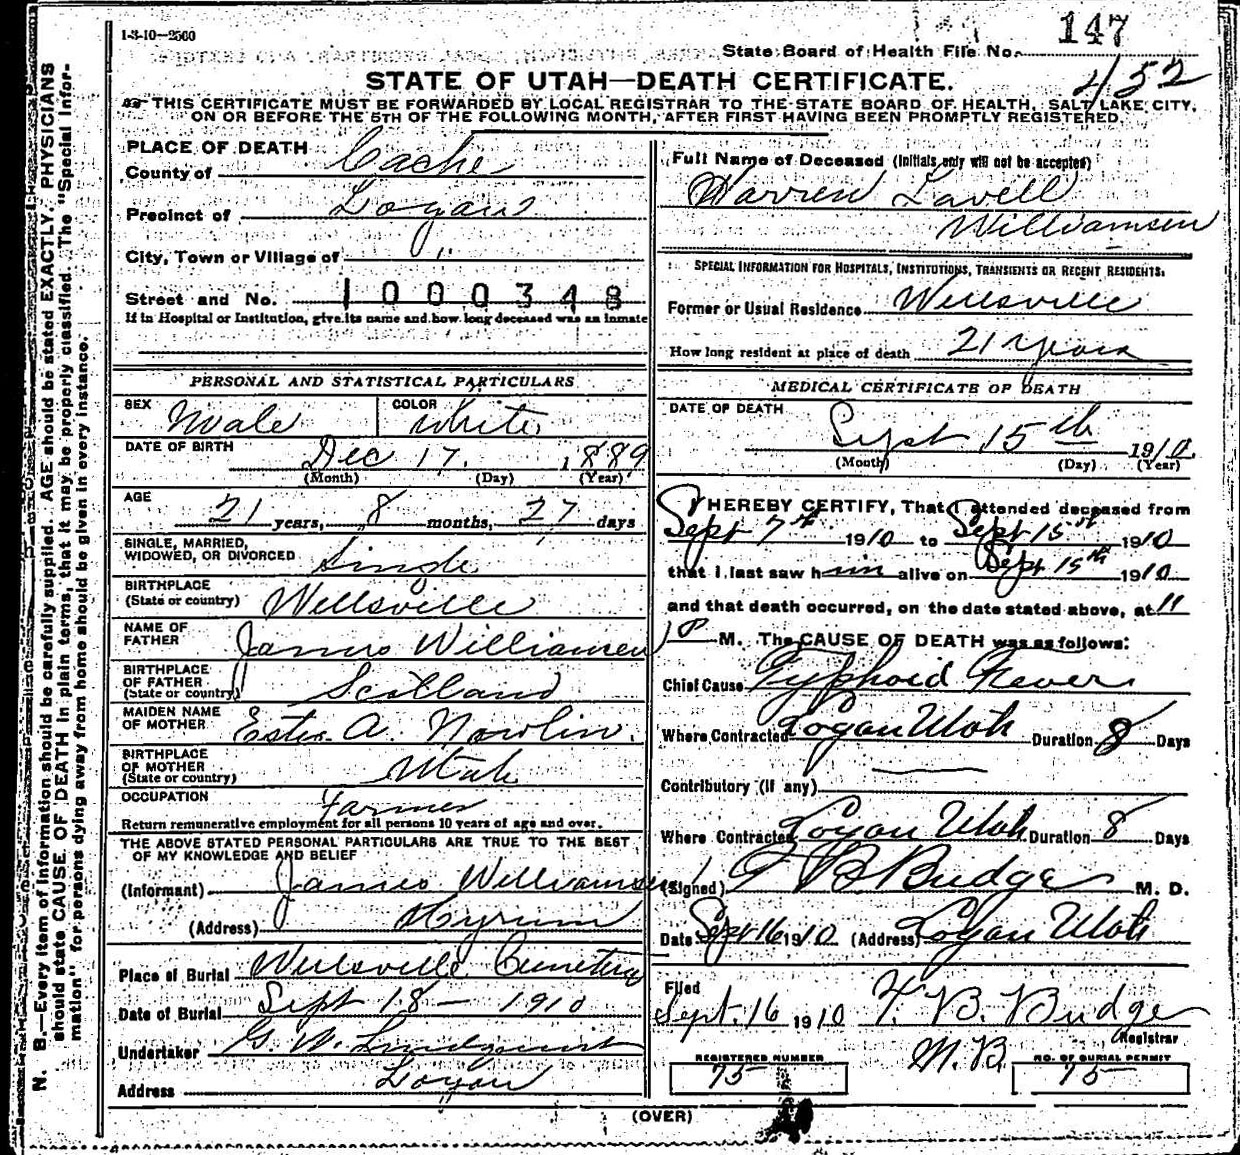 1-3-10—2500
State Board of Health File No. 147
452
STATE OF UTAH—DEATH CERTIFICATE.
THIS CERTIFICATE MUST BE FORWARDED BY LOCAL REGISTRAR TO THE STATE BOARD OF HEALTH, SALT LAKE CITY,
ON OR BEFORE THE 5TH OF THE FOLLOWING MONTH, AFTER FIRST HAVING BEEN PROMPTLY REGISTERED.
N. B.—Every item of information should be carefully supplied. AGE should be stated EXACTLY. PHYSICIANS
should state CAUSE OF DEATH in plain terms, that it may be properly classified. The "Special Infor-
mation" for persons dying away from home should be given in every instance.
PLACE OF DEATH
County of Cache
Precinct of Logan
City, Town or Village of "
Street and No. 1000348
If in Hospital or Institution, give its name and how long deceased was an inmate
PERSONAL AND STATISTICAL PARTICULARS
SEX Male COLOR White
DATE OF BIRTH Dec 17. 1889
(Month) (Day) (Year)
AGE 21 years, 8 months, 27 days
SINGLE, MARRIED,
WIDOWED, OR DIVORCED Single
BIRTHPLACE
(State or country) Wellsville
NAME OF
FATHER James Williamsen
BIRTHPLACE
OF FATHER
(State or country) Scotland
MAIDEN NAME
OF MOTHER Ester A. Nowlin.
BIRTHPLACE
OF MOTHER
(State or country) Utah
OCCUPATION Farmer
Return remunerative employment for all persons 10 years of age and over.
THE ABOVE STATED PERSONAL PARTICULARS ARE TRUE TO THE BEST
OF MY KNOWLEDGE AND BELIEF
(Informant) James Williamsen
(Address) Hyrum
Place of Burial Wellsville Cemetery
Date of Burial Sept 18 — 1910
Undertaker G. W. Lindquist
Address Logan
Full Name of Deceased (Initials only will not be accepted)
Warren Lavell
Williamsen
SPECIAL INFORMATION FOR HOSPITALS, INSTITUTIONS, TRANSIENTS OR RECENT RESIDENTS.
Former or Usual Residence Wellsville
How long resident at place of death 21 years
MEDICAL CERTIFICATE OF DEATH
DATE OF DEATH
Sept 15th 1910
(Month) (Day) (Year)
I HEREBY CERTIFY, That I attended deceased from
Sept 7th 1910 to Sept 15th 1910
that I last saw him alive on Sept 15th 1910
and that death occurred, on the date stated above, at 11
P M. The CAUSE OF DEATH was as follows:
Chief Cause Typhoid Fever
Where Contracted Logan Utah Duration 8 Days
Contributory (if any)
Where Contracted Logan Utah Duration 8 Days
(Signed) T B Budge M. D.
Date Sept 16 1910 (Address) Logan Utah
Filed
Sept. 16 1910 T. B. Budge
Registrar
M.D.
REGISTERED NUMBER
75
NO. OF BURIAL PERMIT
75
(OVER)